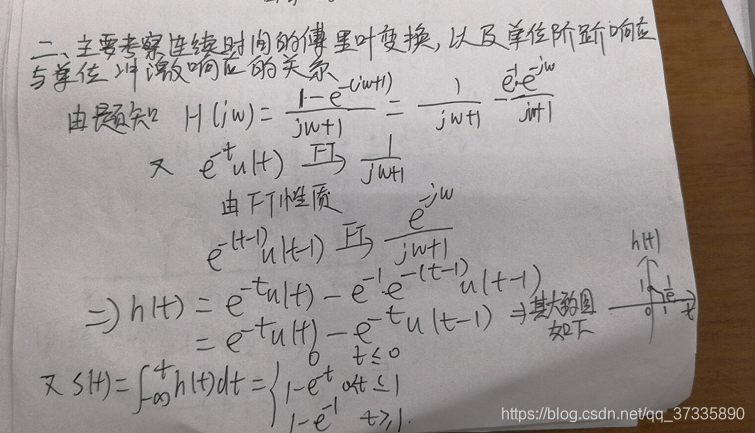 二、主要考察连续时间的傅里叶变换,以及单位阶跃响应
与单位冲激响应的关系
由题知 H(jw) = \frac{1-e^{-(jw+1)}}{jw+1} = \frac{1}{jw+1} - \frac{e^{-1}·e^{-jw}}{jw+1}
又 e^{-t}u(t) \xrightarrow{FT} \frac{1}{jw+1}
由FT性质
e^{-(t-1)}u(t-1) \xrightarrow{FT} \frac{e^{-jw}}{jw+1}
=> h(t) = e^{-t}u(t) - e^{-1}·e^{-(t-1)}u(t-1)
= e^{-t}u(t) - e^{-t}u(t-1) => 其大致图
如下
h(t)
1 \frac{1}{e}
0 1 t
又 s(t) = ∫_{-∞}^{t} h(t)dt = { 0 t≤0
1-e^{-t} 0<t≤1
1-e^{-1} t≥1.
https://blog.csdn.net/qq_37335890